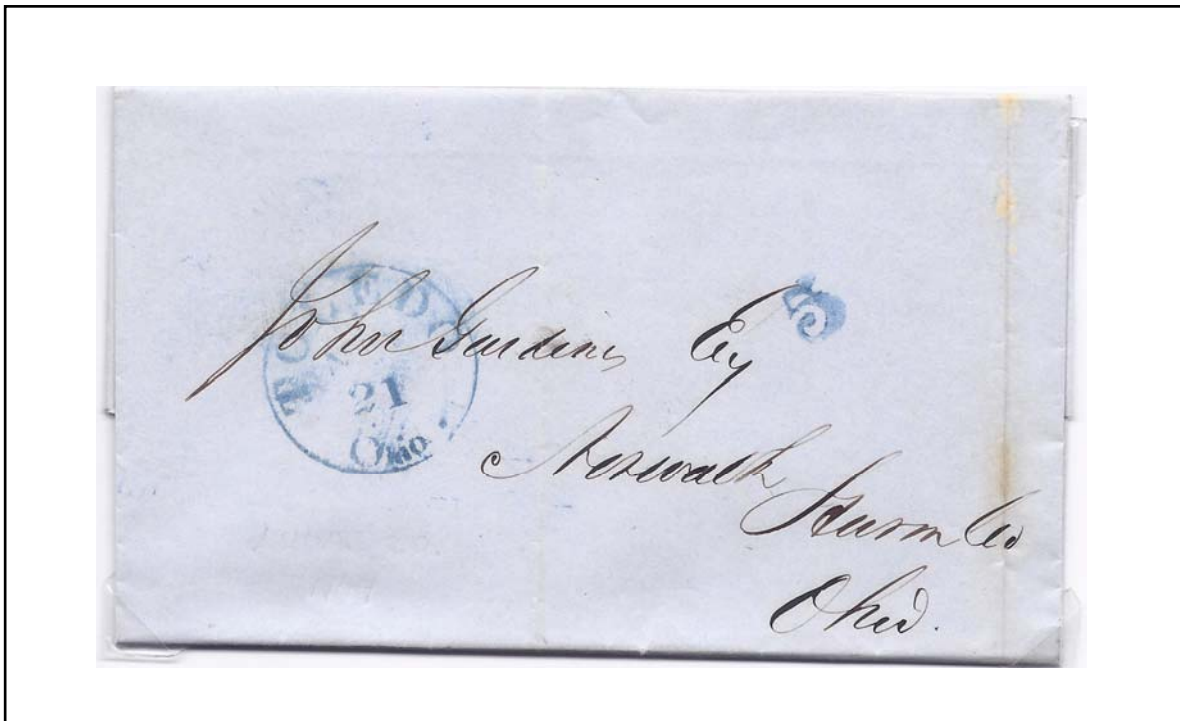 TOLEDO
21
Ohio
5
John Gardiner Esq
Norwalk
Huron Co
Ohio.